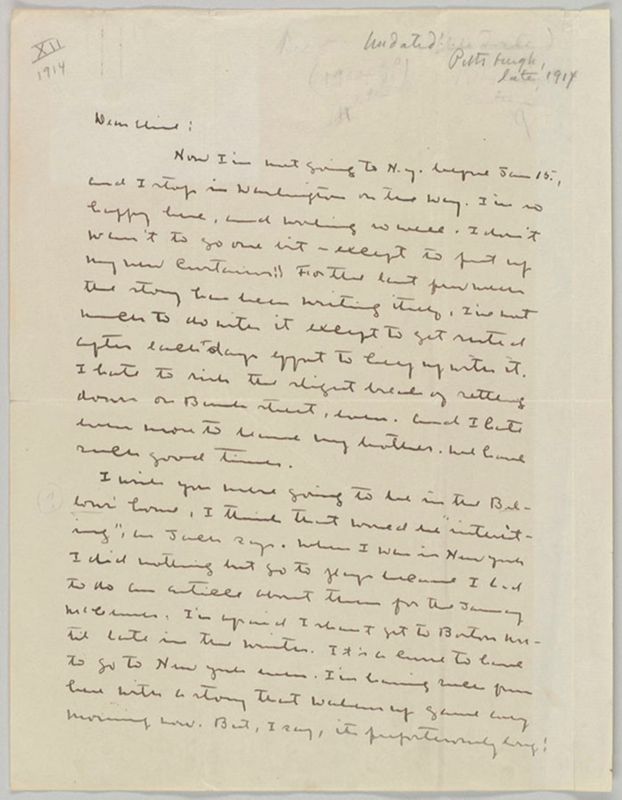 XII
1914
Undated
Pittsburgh,
late, 1914
Dear
Now I'm not going to N.Y. before Jan 15.,
and I stop in Washington on the way. I'm so
happy here, and working so well. I don't
want to go one bit - except to put up
my new curtains!! For the last few weeks
the story has been writing itself, I've not
much to do with it except to get rested
after each days effort to keep up with it.
I hate to risk the slight break of settling
down on Bank street, even. And I hate
even more to leave my brother. We have
such good times.
I wish you were going to be in the Bel-
lows' home, I think that would be "interest-
ing", as Jack says. When I was in New York
I did nothing but go to plays because I had
to do an article about them for the January
McClures. I'm afraid I shan't get to Boston un-
til late in the winter. It's a curse to have
to go to New York even. I'm having such fun
here with a story that wakes up game every
morning now. But, I say, it's preposterously long!